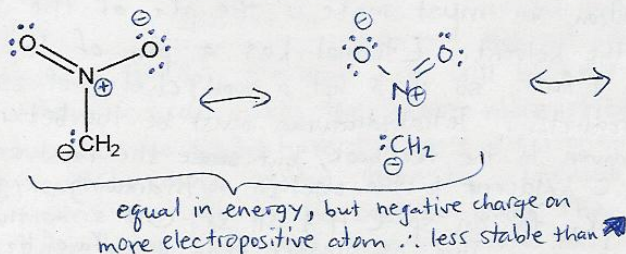 ⊖
O O
N ⊕
⊖ CH2
⊖
O O
N ⊕
CH2
⊖
equal in energy, but negative charge on
more electropositive atom ∴ less stable than